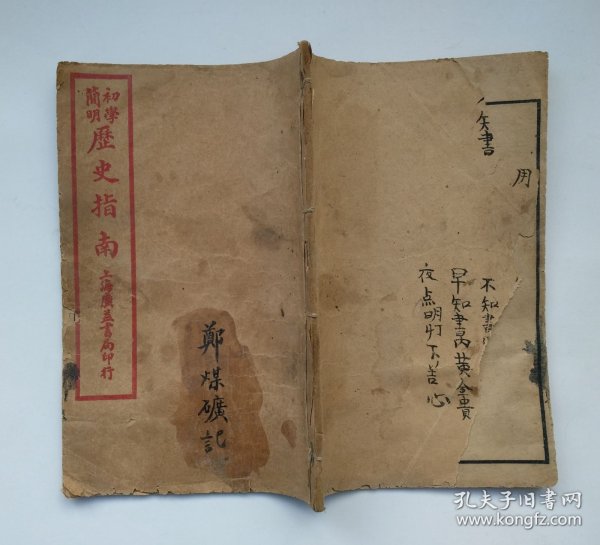 初學
簡明
歷史指南
上海廣益書局印行
鄭煤礦記
矢書
用
不知書
早知書萬黃金貴
夜点明灯下苦心
孔夫子旧书网
www.kongfz.com